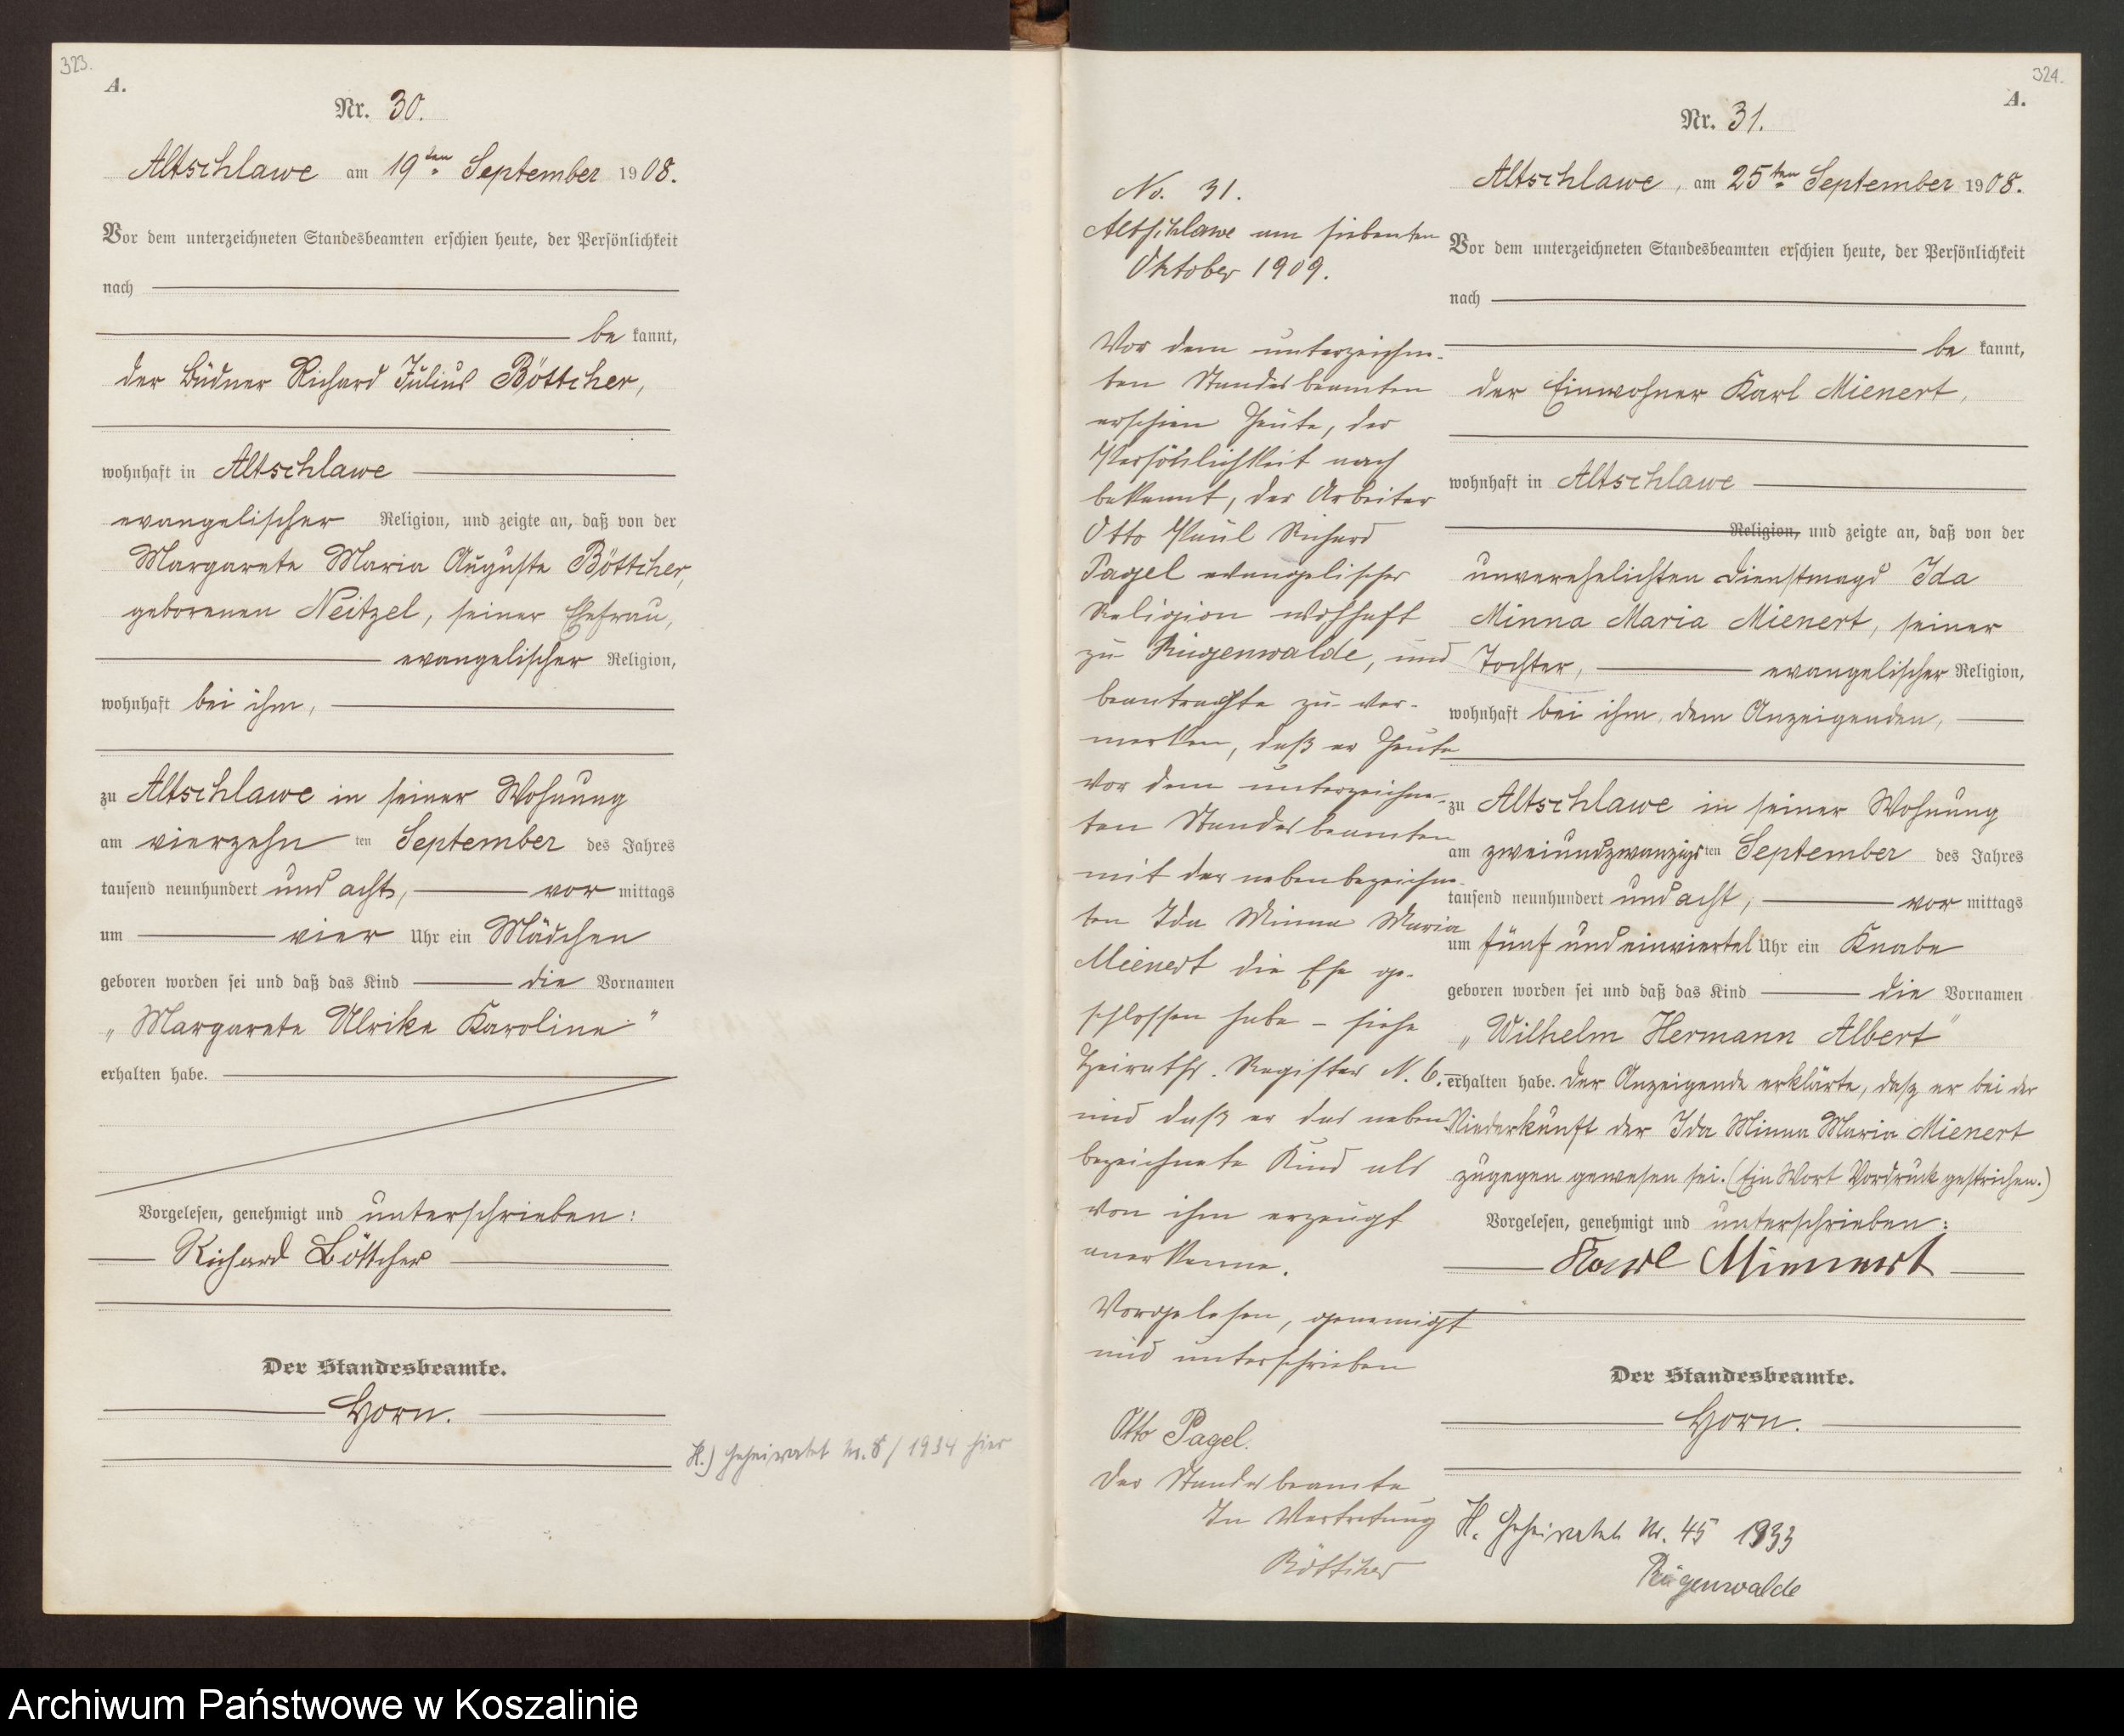 323.
A.
Nr. 30.
Altschlawe am 19ten September 1908.
Vor dem unterzeichneten Standesbeamten erschien heute, der Persönlichkeit
nach
be kannt,
der Büdner Richard Julius Böttcher,
wohnhaft in Altschlawe
evangelischer Religion, und zeigte an, daß von der
Margarete Maria Auguste Böttcher,
geborenen Neitzel, seiner Ehefrau,
evangelischer Religion,
wohnhaft bei ihm,
zu Altschlawe in seiner Wohnung
am vierzehn ten September des Jahres
tausend neunhundert und acht, vor mittags
um vier Uhr ein Mädchen
geboren worden sei und daß das Kind die Vornamen
„Margarete Ulrike Karoline"
erhalten habe.
Vorgelesen, genehmigt und unterschrieben:
Richard Böttcher
Der Standesbeamte.
Horn.
K.) Geheiratet Nr. 8/1934 hier
324.
A.
Nr. 31.
Altschlawe, am 25ten September 1908.
Vor dem unterzeichneten Standesbeamten erschien heute, der Persönlichkeit
nach
be kannt,
der Einwohner Karl Mienert,
wohnhaft in Altschlawe
Religion, und zeigte an, daß von der
unverehelichten Dienstmagd Ida
Minna Maria Mienert, seiner
Tochter, evangelischer Religion,
wohnhaft bei ihm, dem Anzeigenden,
zu Altschlawe in seiner Wohnung
am zweiundzwanzigsten September des Jahres
tausend neunhundert und acht, vor mittags
um fünf und einviertel Uhr ein Knabe
geboren worden sei und daß das Kind die Vornamen
„Wilhelm Hermann Albert"
erhalten habe. Der Anzeigende erklärte, dasz er bei der
Niederkunft der Ida Minna Maria Mienert
zugegen gewesen sei. (Ein Wort Vordruck gestrichen.)
Vorgelesen, genehmigt und unterschrieben:
Karl Minnert
Der Standesbeamte.
Horn.
K. Geheiratet Nr. 45 1933
Rügenwalde
No. 31.
Altschlawe am siebenten
Oktober 1909.
Vor dem unterzeichne-
ten Standesbeamten
erschien heute, der
Persönlichkeit nach
bekannt, der Arbeiter
Otto Paul Richard
Pagel evangelischer
Religion wohhaft
zu Rügenwalde, und
beantragte zu ver-
merken, daß er heute
vor dem unterzeichne-
ten Standesbeamten
mit der nebenbezeichne-
ten Ida Minna Maria
Mienert die Ehe ge-
schlossen habe – siehe
Heiraths. Register N. 6.
und daß er das neben
bezeichnete Kind als
von ihm erzeugt
anerkenne.
Vorgelesen, genemigt
und unterschrieben
Otto Pagel.
Der Standesbeamte
In Vertretung
Böttcher
Archiwum Państwowe w Koszalinie